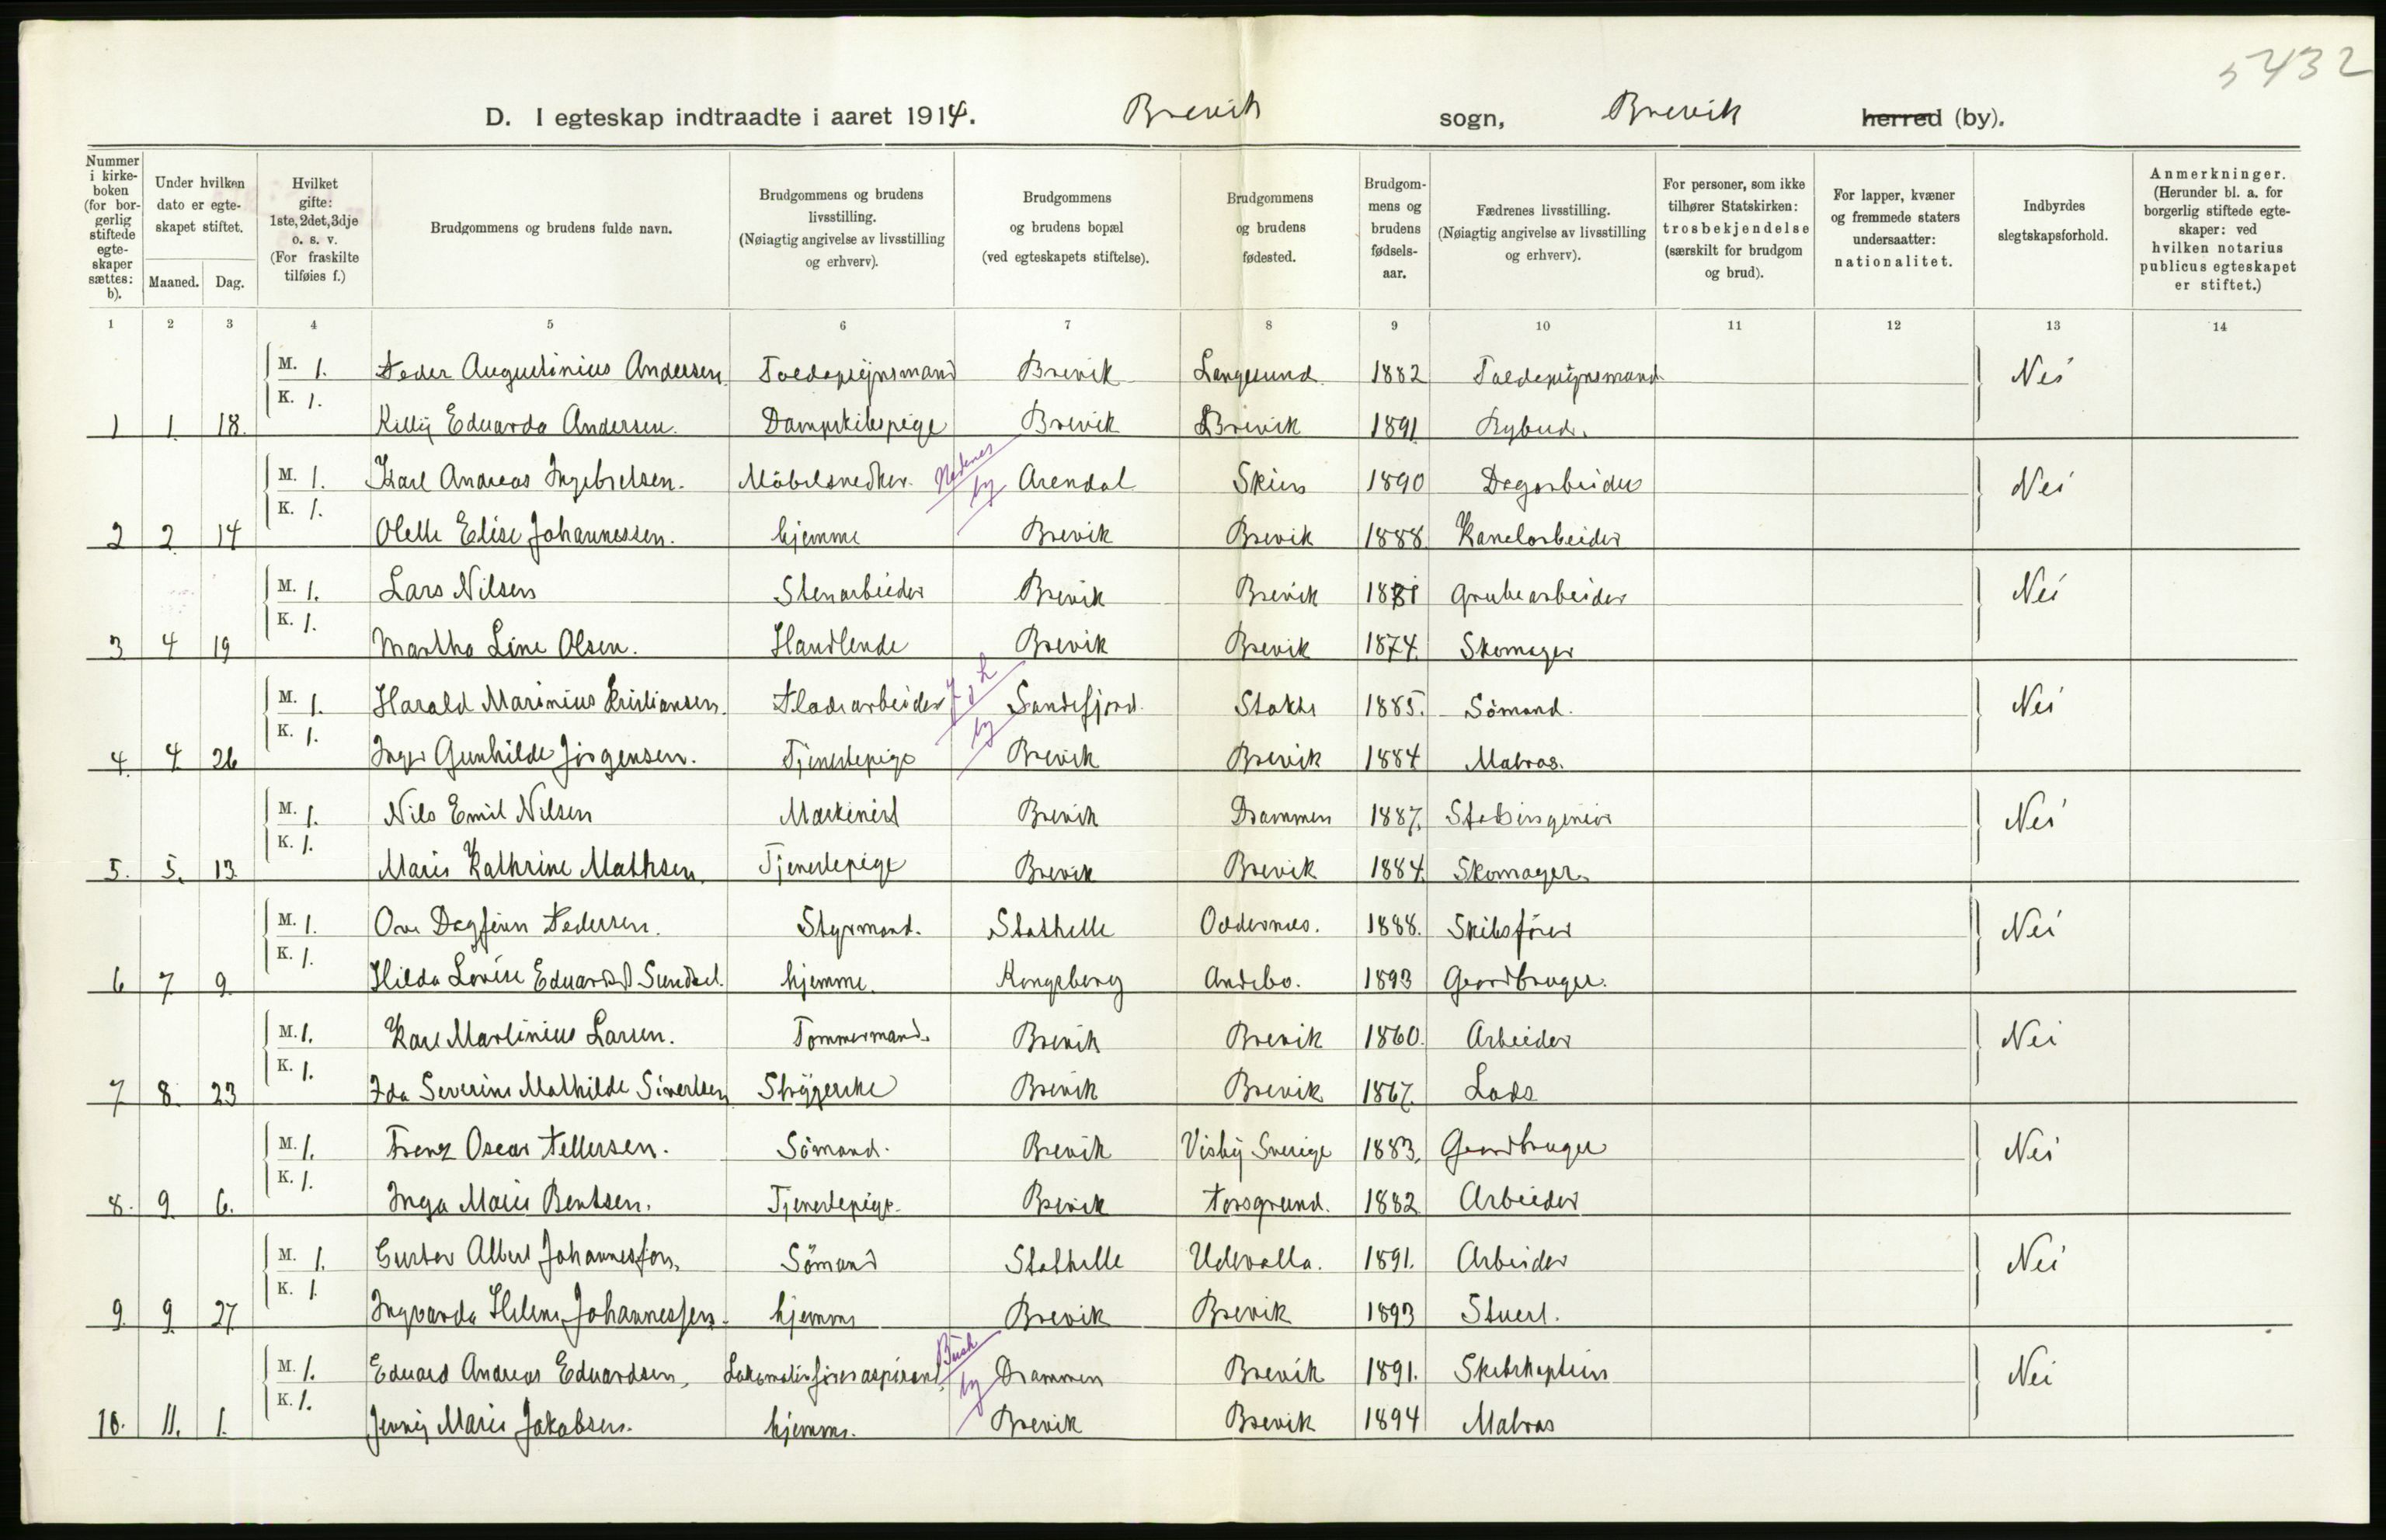 5432
D. I egteskap indtraadte i aaret 1914. Brevik sogn, Brevik herred (by).
Nummer i kirke-boken (for bor-gerlig stiftede egte-skaper sættes: b).
Under hvilken dato er egte-skapet stiftet.
Maaned. Dag.
Hvilket gifte: 1ste, 2det, 3dje o. s. v. (For fraskilte tilføies f.)
Brudgommens og brudens fulde navn.
Brudgommens og brudens livsstilling. (Nøiagtig angivelse av livsstilling og erhverv).
Brudgommens og brudens bopæl (ved egteskapets stiftelse).
Brudgommens og brudens fødested.
Brudgom-mens og brudens fødsels-aar.
Fædrenes livsstilling. (Nøiagtig angivelse av livsstilling og erhverv).
For personer, som ikke tilhører Statskirken: trosbekjendelse (særskilt for brudgom og brud).
For lapper, kvæner og fremmede staters undersaatter: nationalitet.
Indbyrdes slegtskapsforhold.
Anmerkninger. (Herunder bl. a. for borgerlig stiftede egte-skaper: ved hvilken notarius publicus egteskapet er stiftet.)
1 2 3 4 5 6 7 8 9 10 11 12 13 14
M. 1. Peder Augustinius Andersen Toldopsynsmand Brevik Langesund 1882 Toldopsynsmand Nei
1 1 18. K. 1. Killy Eduarda Andersen. Dampskibspige Brevik Brevik 1891 Bybud.
M. 1. Karl Andreas Ingebretsen. Möbelsnedker. Nedenes by Arendal Skien 1890 Dagarbeider Nei
2 2 14 K. 1. Olette Elise Johannessen. hjemme Brevik Brevik 1888. Kanalarbeider
M. 1. Lars Nilsen Stenarbeider Brevik Brevik Grubearbeider Nei
3 4 19 K. 1. Martha Line Olsen. Handlende Brevik Brevik 1874. Skomager
M. 1. Harald Marinius Kristiansen. Pladsarbeider J & L by Sandefjord. Stokke 1885. Sömand. Nei
4. 4 26 K. 1. Inger Gunhilde Jörgensen. Tjenestepige Brevik Brevik 1884 Matros.
M. 1. Nils Emil Nilsen Maskinist Brevik Drammen 1887. Stadsingeniör Nei
5. 5. 13. K. 1. Marie Kathrine Mathisen. Tjenestepige Brevik Brevik 1884. Skomager.
M. 1. Ove Dagfinn Pedersen. Styrmand. Stathelle Oddernes. 1888. Skibsförer Nei
6 7 9. K. 1. Hilda Lovise Sundset. hjemme. Kongsberg Andebo. 1893 Gaardbruger.
M. 1. Karl Martinius Larsen. Tömmermand. Brevik Brevik 1860. Arbeider Nei
7 8. 23 K. 1. Ida Severine Mathilde Sivertsen Strygerske Brevik Brevik 1867. Lods
M. 1. Frenz Oscar Pettersen. Sömand. Brevik Visby Sverige 1883. Gaardbruger Nei
8. 9. 6. K. 1. Inga Marie Bentsen. Tjenestepige. Brevik Porsgrund. 1882 Arbeider
M. 1. Gustav Albert Johannesson. Sömand Stathelle Udevalla. 1891. Arbeider Nei
9. 9. 27. K. 1. Ingvarda Helene Johannessen. hjemme Brevik Brevik 1893 Stuert.
M. 1. Eduard Andreas Eduardsen, Lokomotivföreraspirant Busk by Drammen Brevik 1891. Skibskaptein Nei
10. 11. 1. K. 1. Jenny Marie Jakobsen. hjemme. Brevik Brevik 1894 Matros